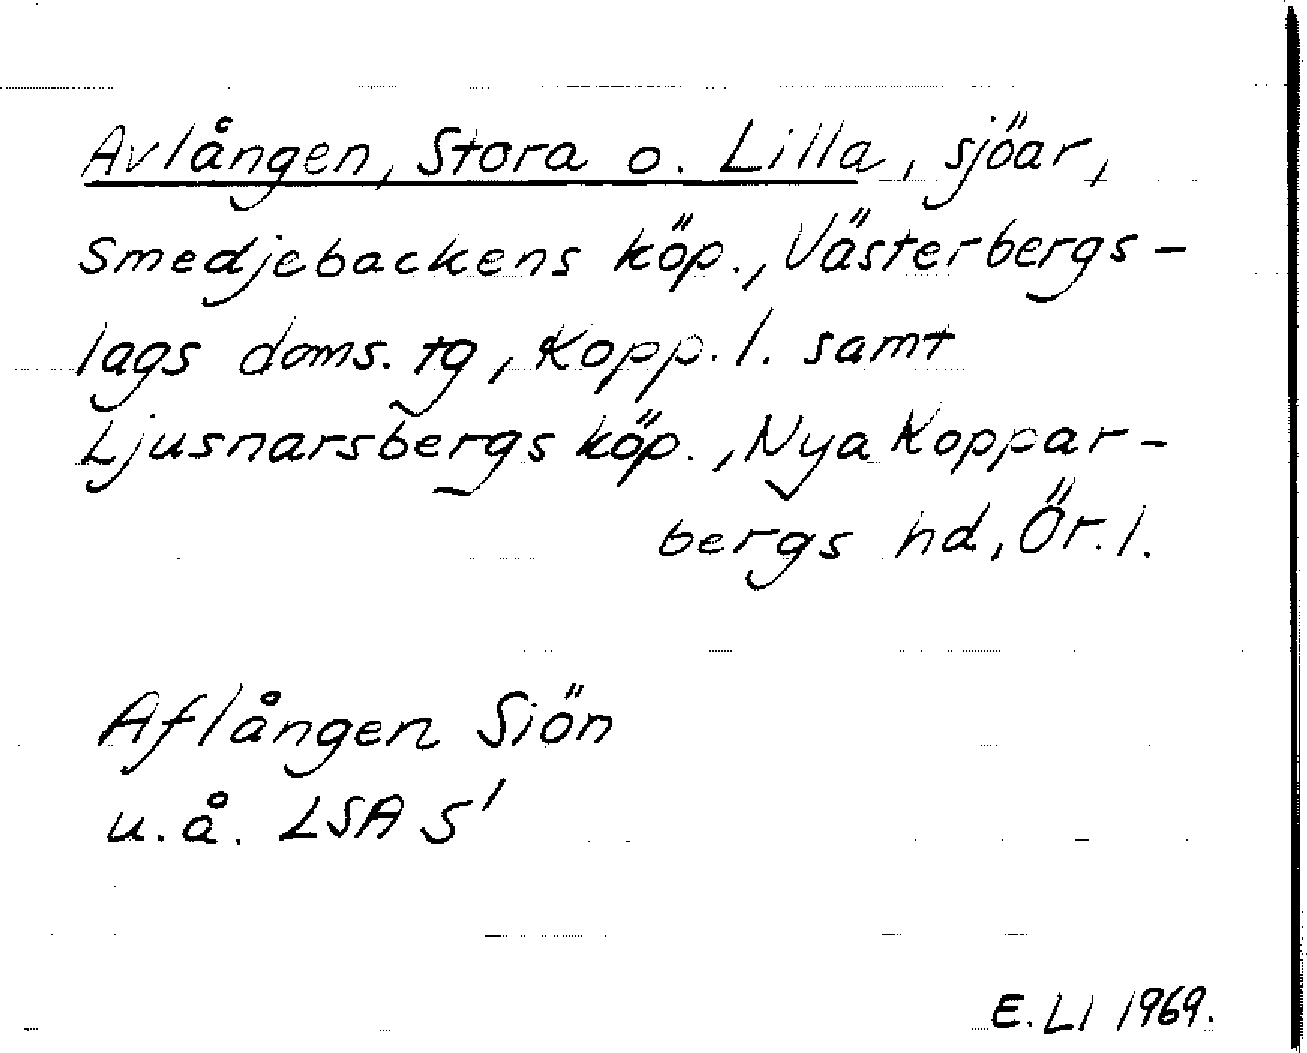 Avlången, Stora o. Lilla, sjöar,
Smedjebackens köp., Västerbergs-
lags doms. tg, Kopp. l. samt
Ljusnarsbergs köp., Nya Koppar-
bergs hd, Ör. l.
Aflången Siön
u. å. LSA S'
E. LI 1969.